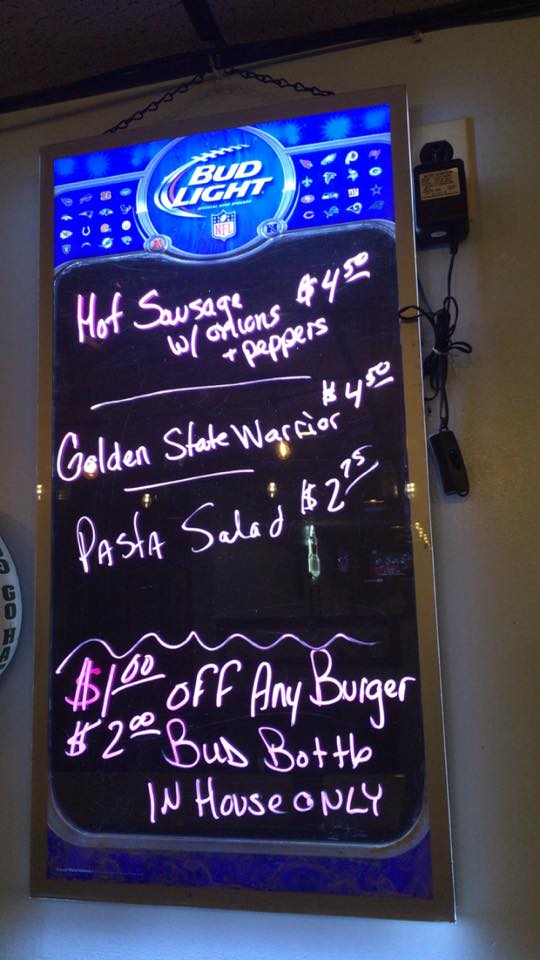 BUD
LIGHT
NFL
Hot Sausage $4.50
w/ onions
+ peppers
$4.50
Golden State Warrior
Pasta Salad $2.75
$1.00 OFF Any Burger
$2.00 Bud Bottle
IN House ONLY
GO HA